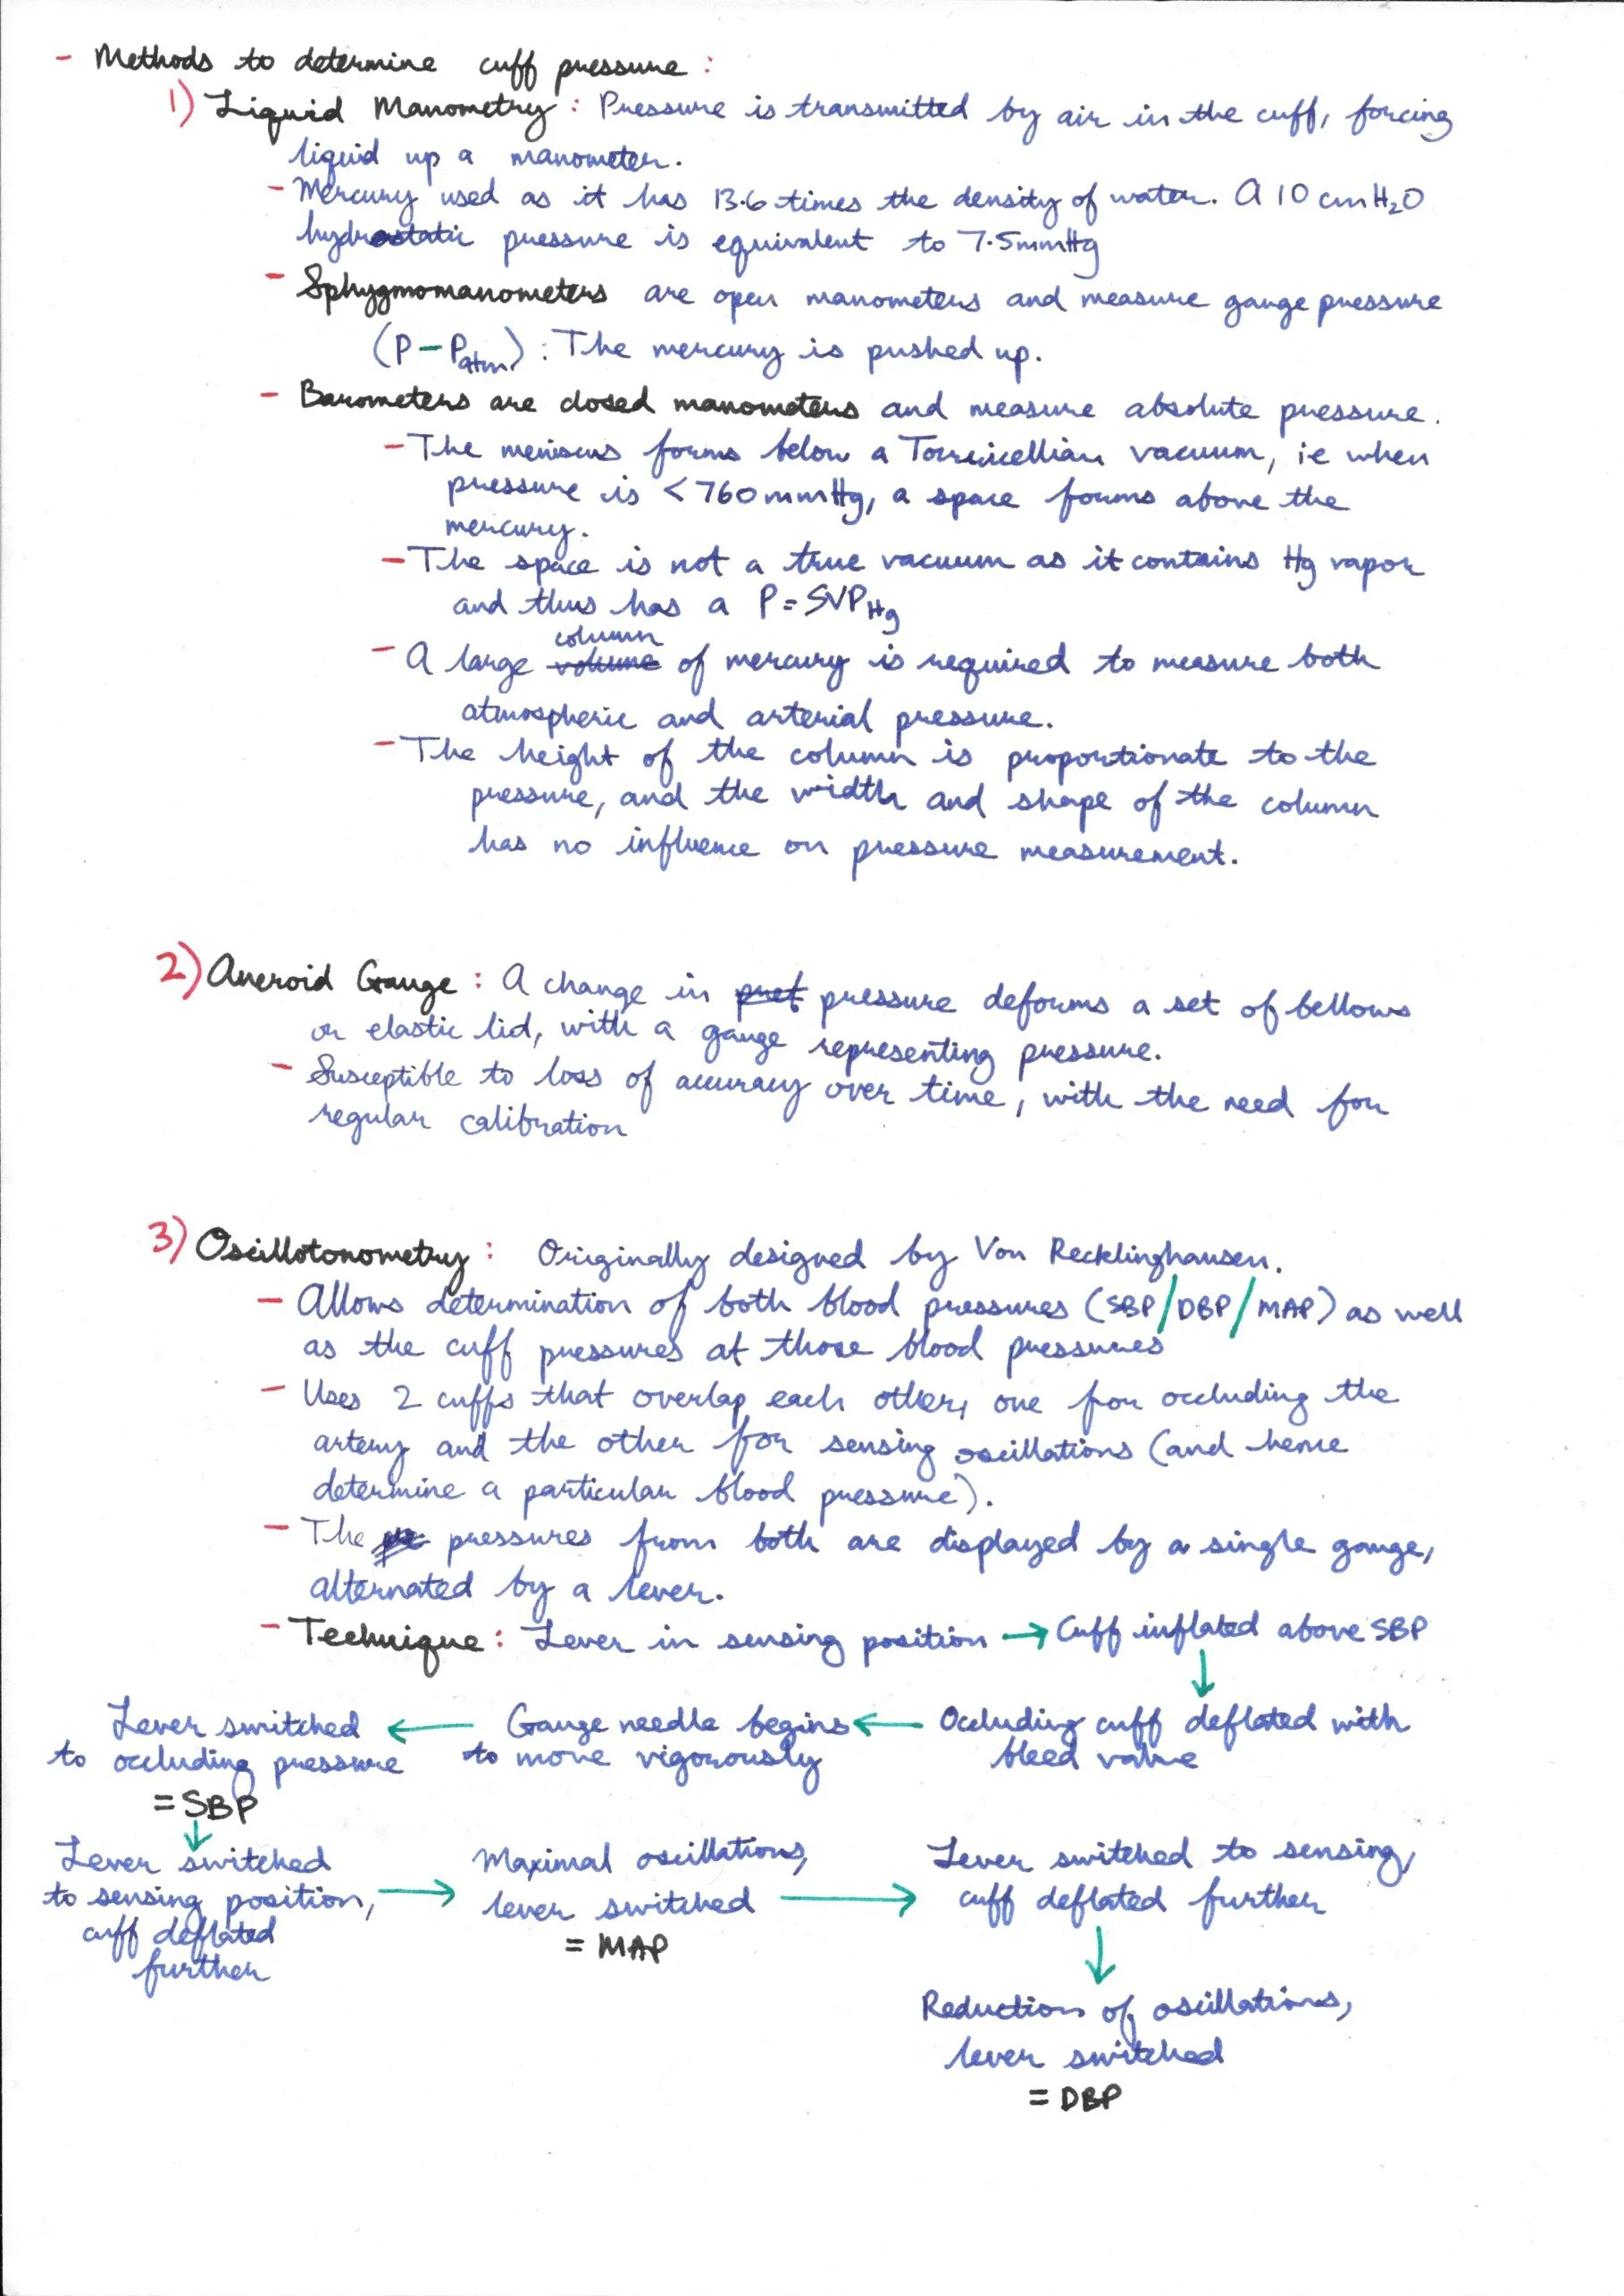 - Methods to determine cuff pressure :
1) Liquid Manometry : Pressure is transmitted by air in the cuff, forcing
liquid up a manometer.
- Mercury used as it has 13.6 times the density of water. A 10 cm H₂O
hydrostatic pressure is equivalent to 7.5mmHg
- Sphygmomanometers are open manometers and measure gauge pressure
(P - Patm) : The mercury is pushed up.
- Barometers are closed manometers and measure absolute pressure.
- The meniscus forms below a Torricellian vacuum, ie when
pressure is < 760 mmHg, a space forms above the
mercury.
- The space is not a true vacuum as it contains Hg vapor
and thus has a P = SVP Hg
column
- A large volume of mercury is required to measure both
atmospheric and arterial pressure.
- The height of the column is proportionate to the
pressure, and the width and shape of the column
has no influence on pressure measurement.
2) Aneroid Gauge : A change in pressure deforms a set of bellows
or elastic lid, with a gauge representing pressure.
- Susceptible to loss of accuracy over time, with the need for
regular calibration
3) Oscillotonometry : Originally designed by Von Recklinghausen.
- Allows determination of both blood pressures (SBP/DBP/MAP) as well
as the cuff pressures at those blood pressures
- Uses 2 cuffs that overlap each other, one for occluding the
artery and the other for sensing oscillations (and hence
determine a particular blood pressure).
- The pressures from both are displayed by a single gauge,
alternated by a lever.
- Technique : Lever in sensing position → Cuff inflated above SBP
↓
Occluding cuff deflated with
bleed valve
← Gauge needle begins
to move vigorously
← Lever switched
to occluding pressure
= SBP
↓
Lever switched
to sensing position,
cuff deflated
further
→ Maximal oscillations,
lever switched
= MAP
→ Lever switched to sensing,
cuff deflated further
↓
Reduction of oscillations,
lever switched
= DBP